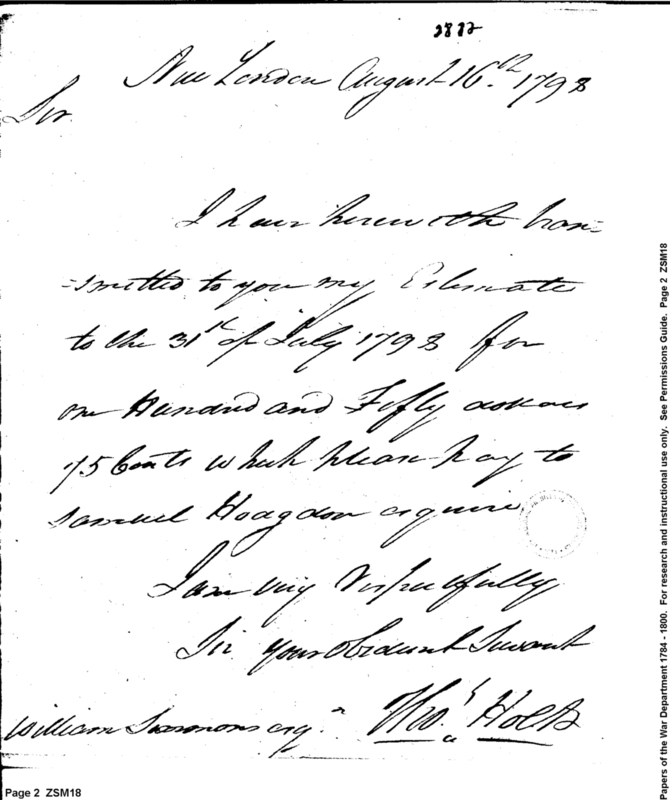 2882
New London August 16.th 1798
Sir
I have herewith tran=
=smitted to you my Estimate
to the 31st of July 1798 for
one Hundred and Fifty dollars
75 Cents which please pay to
Samuel Hodgdon esquire
I am very Respectfully
Sir your obedient Servant
William Simmons esqr. Thos. Holt
Page 2 ZSM18
Papers of the War Department 1784 - 1800. For research and instructional use only. See Permissions Guide. Page 2 ZSM18